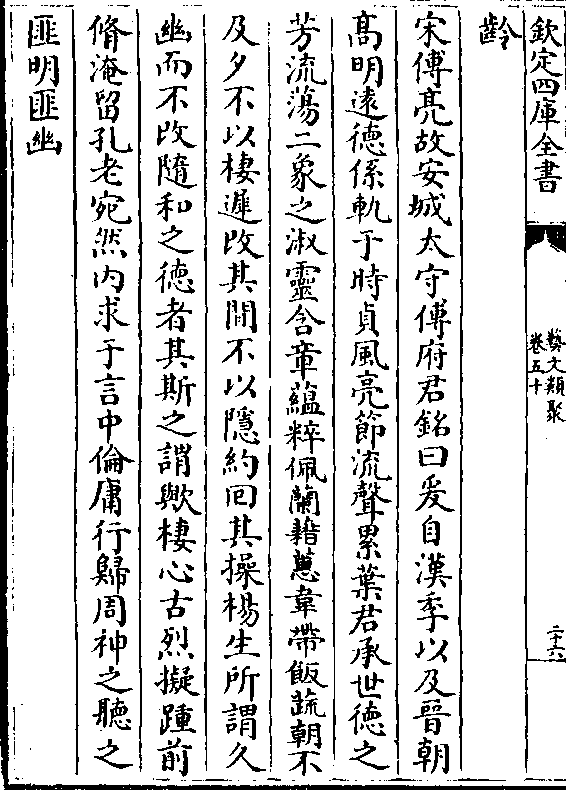 欽定四庫全書
藝文類聚
卷五十
二十六
齡
宋傅亮故安城太守傅府君銘曰爰自漢季以及晉朝
高明遠德係軌于時貞風亮節流聲累葉君承世徳之
芳流蕩二象之淑靈含章蘊粹佩蘭藉蕙韋帶飯蔬朝不
及夕不以棲遲改其閒不以隱約囘其操楊生所謂久
幽而不改隨和之德者其斯之謂歟棲心古烈擬踵前
脩淹留孔老宛然内求于言中倫庸行歸周神之聽之
匪明匪幽